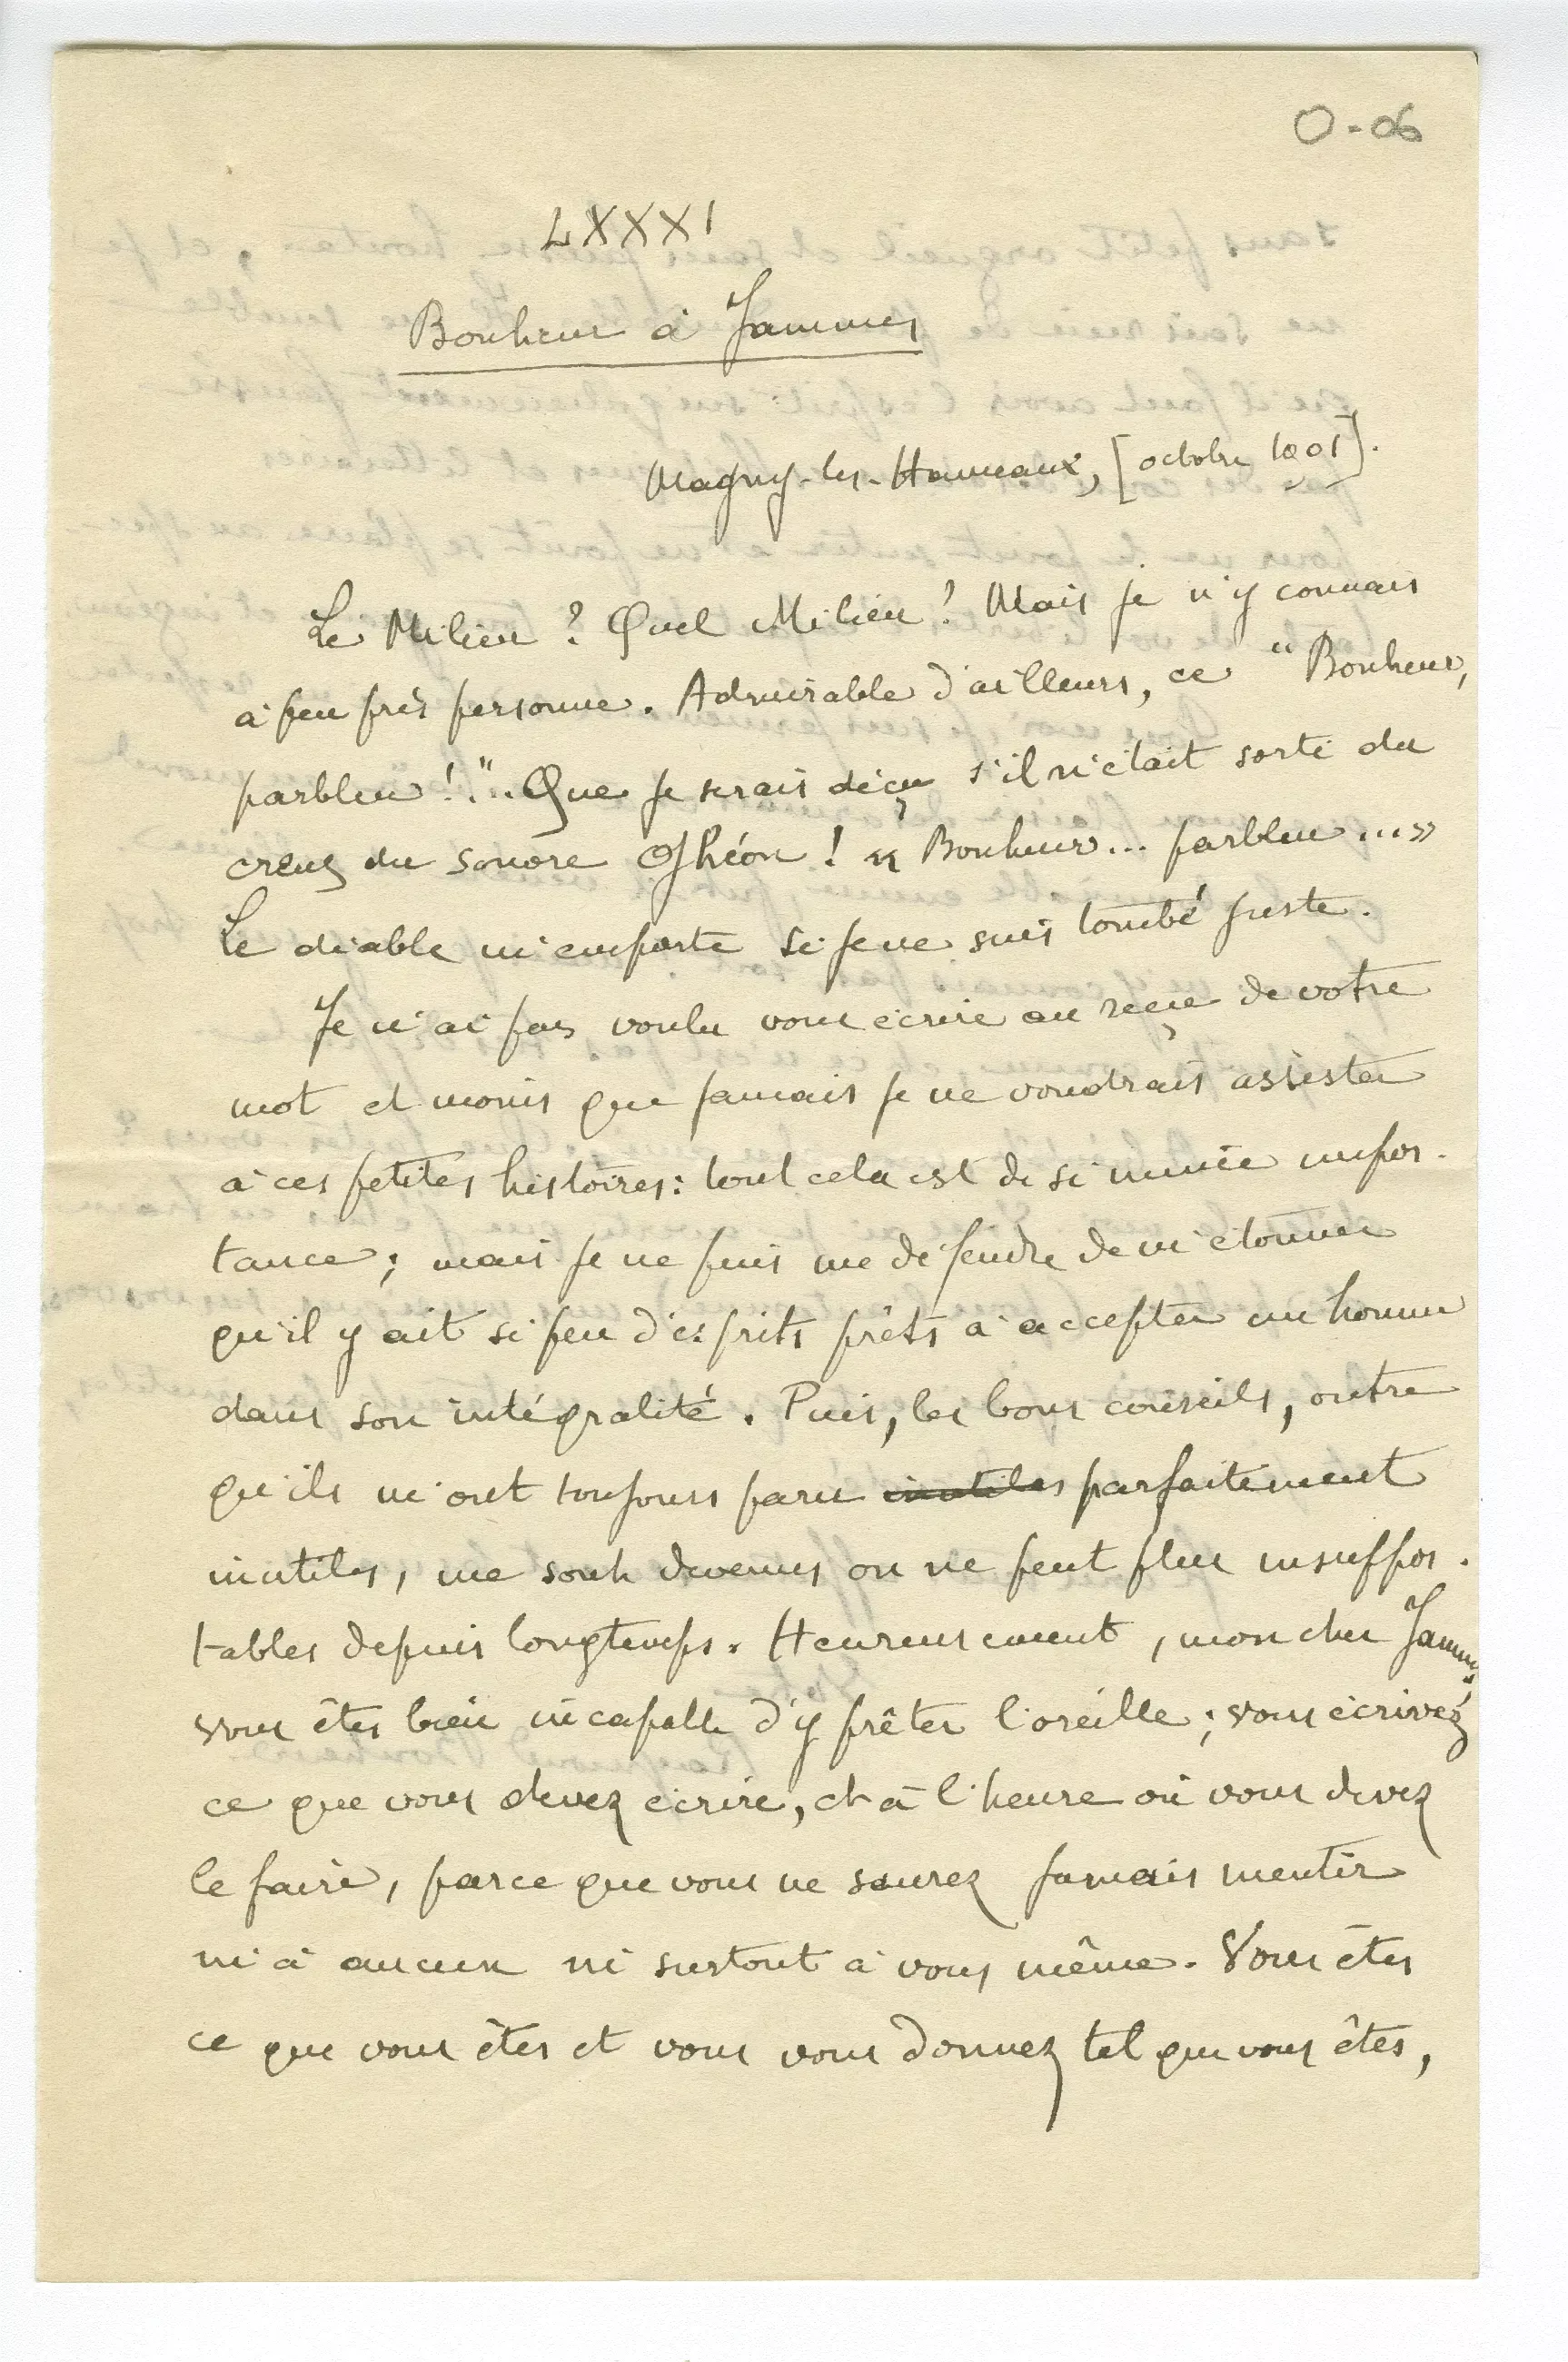 O-06
LXXXI
Bonheur à Jammes
Magny-les-Hameaux, [octobre 1901].
Le Milieu ? Quel Milieu ? Mais je n'y connais
à peu près personne. Admirable d'ailleurs, ce "Bonheur,
parbleu !"... Que je serais déçu s'il n'était sorti du
creux du sonore Ghéon ! « Bonheur... parbleu... »
Le diable m'emporte si je ne suis tombé juste.
Je n'ai pas voulu vous écrire au reçu de votre
mot et moins que jamais je ne voudrais assister
à ces petites histoires : tout cela est de si mince impor-
tance ; mais je ne puis me défendre de m'étonner
qu'il y ait si peu d'esprits prêts à accepter un homme
dans son intégralité. Puis, les bons conseils, outre
qu'ils m'ont toujours paru inutiles parfaitement
inutiles, me sont devenus on ne peut plus insuppor-
tables depuis longtemps. Heureusement, mon cher Jammes,
vous êtes bien incapable d'y prêter l'oreille ; vous écrivez
ce que vous devez écrire, et à l'heure où vous devez
le faire, parce que vous ne saurez jamais mentir
ni à aucun ni surtout à vous même. Vous êtes
ce que vous êtes et vous vous donnez tel que vous êtes,